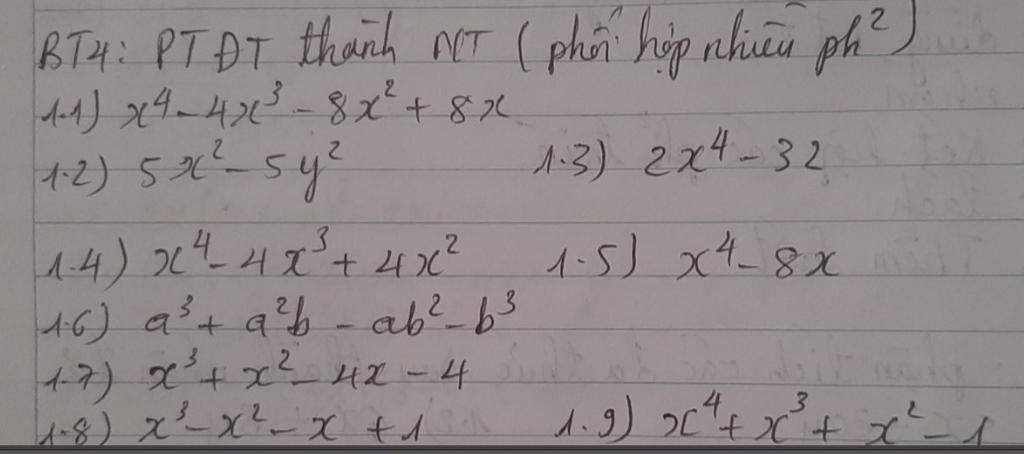 BT4: PTĐT thành NT (phối hợp nhiều ph²)
1.1) x⁴ - 4x³ - 8x² + 8x
1.2) 5x² - 5y² 1.3) 2x⁴ - 32
1.4) x⁴ - 4x³ + 4x² 1.5) x⁴ - 8x
1.6) a³ + a²b - ab² - b³
1.7) x³ + x² - 4x - 4
1.8) x³ - x² - x + 1 1.9) x⁴ + x³ + x² - 1